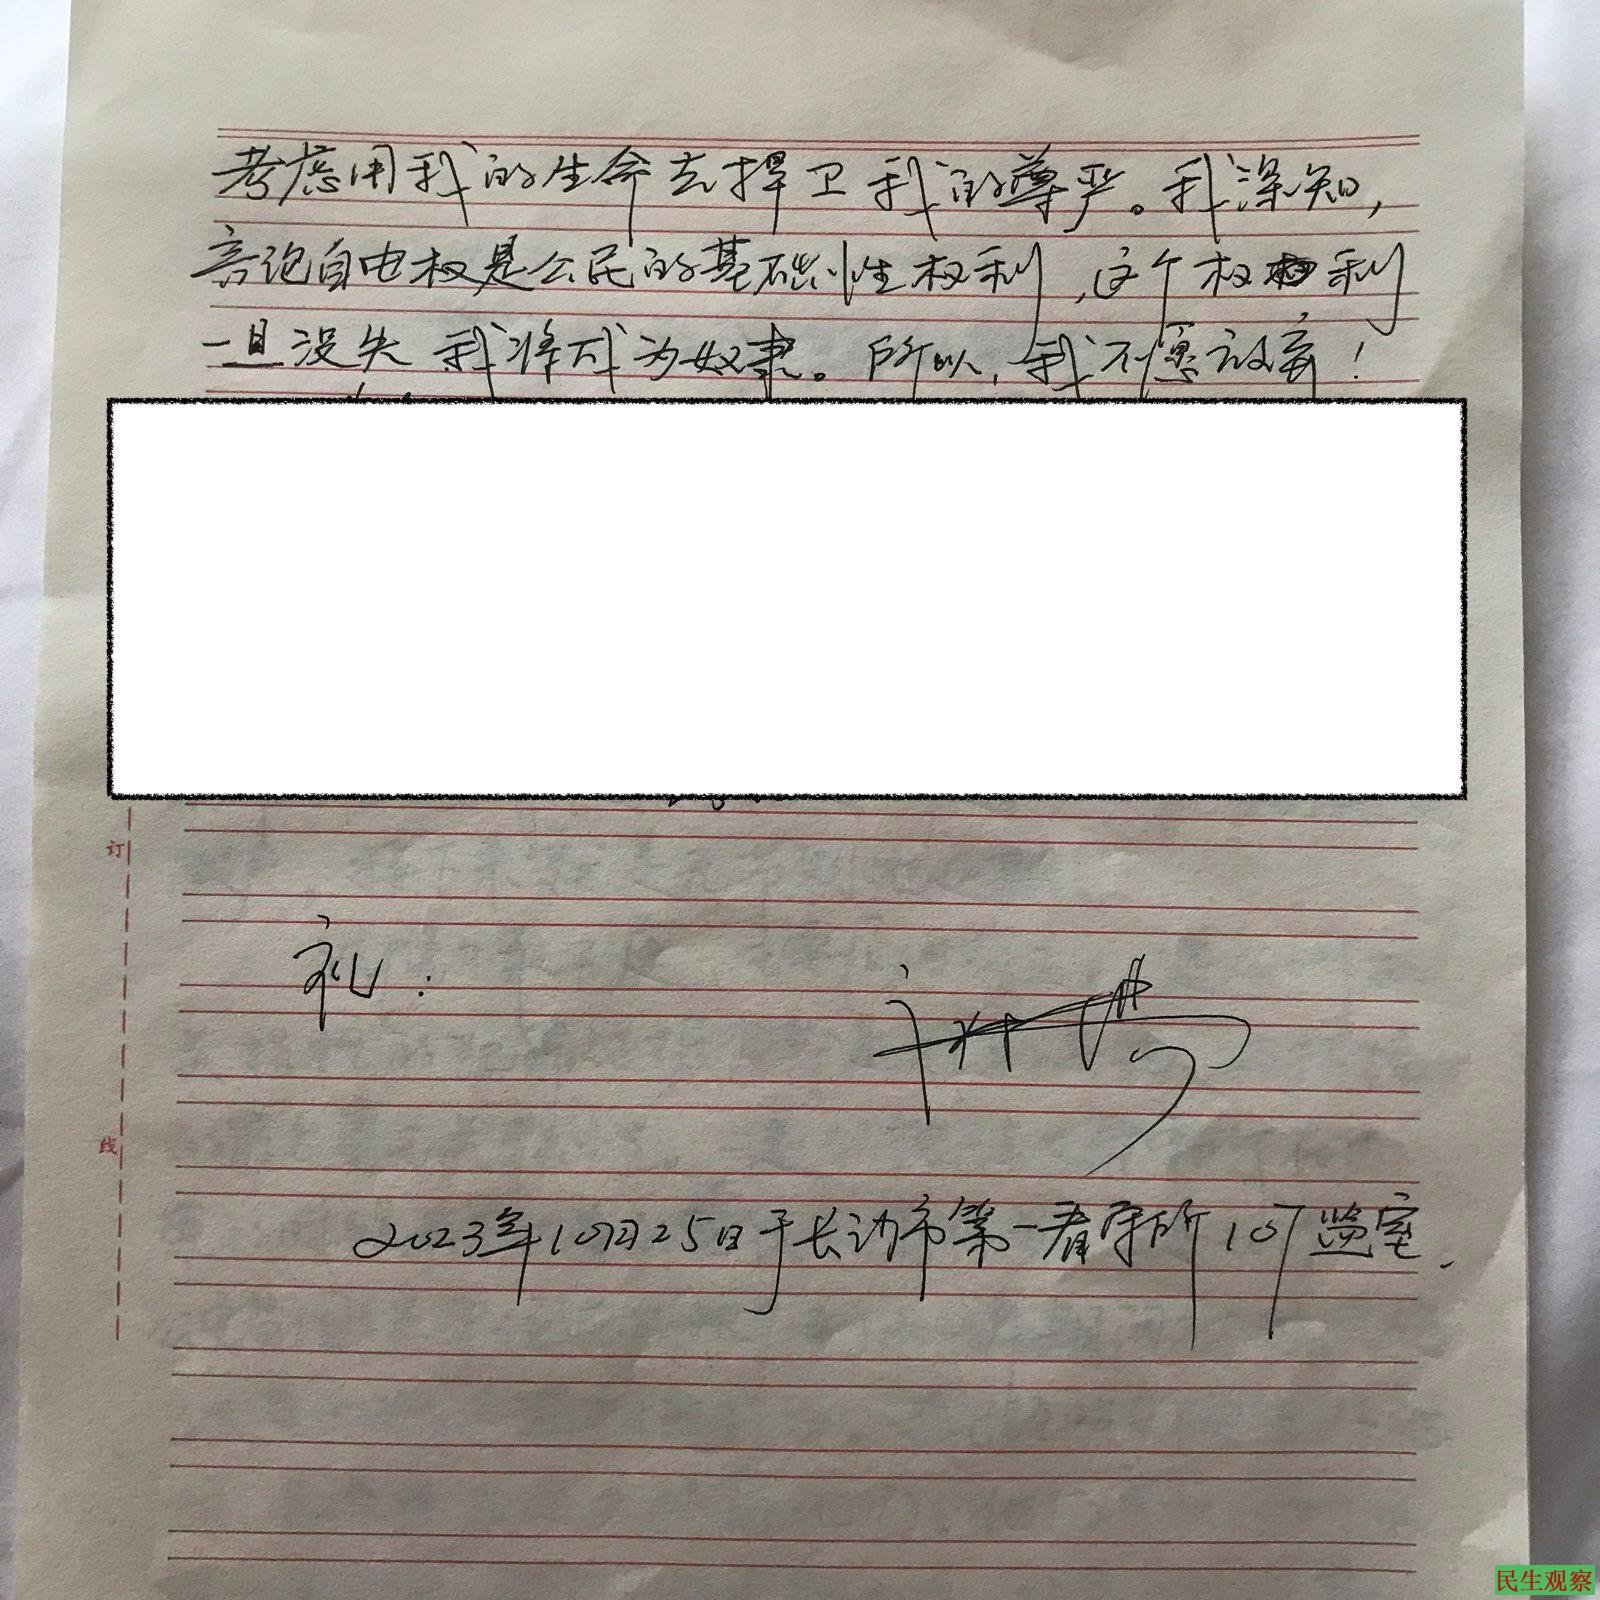 考虑用我的生命去捍卫我的尊严。我深知，
言论自由权是公民的基础性权利，这个权利
一旦没失 我将成为奴隶。所以，我不愿放弃！
订
礼：
线
2023年10月25日于长沙市第一看守所107监室.
民生观察